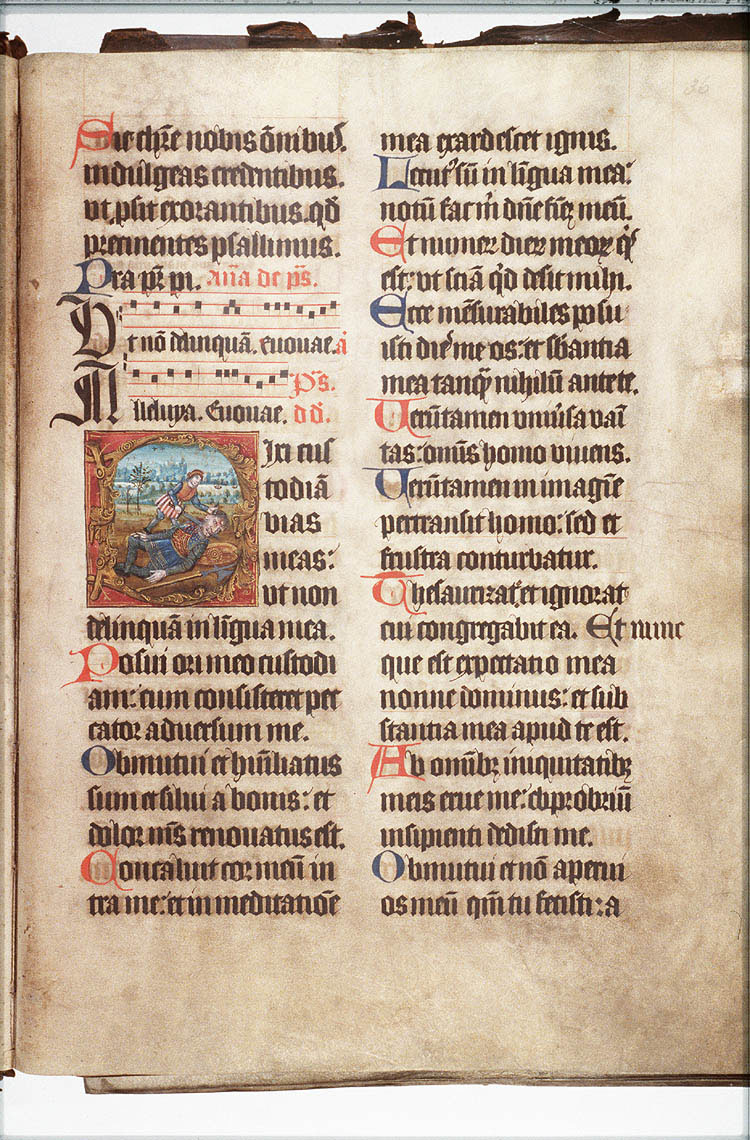 Sic chr̄e nobis om̄ibus.
indulgeas credentibus.
vt psit exorantibus. qd̄
precinentes psallimus.
Pra pr̄ pi. Añā de ps̄.
Vt nō delinquā. euouae. ā
Alleluya. Euouae. Ps̄. dd̄.
Dixi cus
todiā
vias
meas:
vt non
delinquā in līgua mea.
Posui ori meo custodi
am: cum consisteret pec
cator aduersum me.
Obmutui et humīliatus
sum et silui a bonis: et
dolor m̄s renouatus est.
Concaluit cor meū in
tra me: et in meditatiōe
36
mea exardescet ignis.
Locut᾽ sū in līgua mea:
notū fac m̄ dn̄e finē meū.
Et numeꝝ dieꝝ meoꝝ qͥs
est: vt sciā qd̄ desit mihi.
Ecce mēsurabiles posu
isti dies meos: et sbāntia
mea tanqͣ nihilū ante te.
Uerūtamen vniuͥsa vani
tas: omīs homo viuens.
Uerūtamen in imagīe
pertransit homo: sed et
frustra conturbatur.
Thesaurizat: et ignorat
cui congregabit ea. Et nunc
que est expectatio mea
nonne dominus: et sub
stantia mea apud te est.
Ab omībꝫ iniquitatibꝫ
meis erue me: obprobriū
insipienti dedisti me.
Obmutui et nō aperui
os meū qm̄ tu fecisti: a